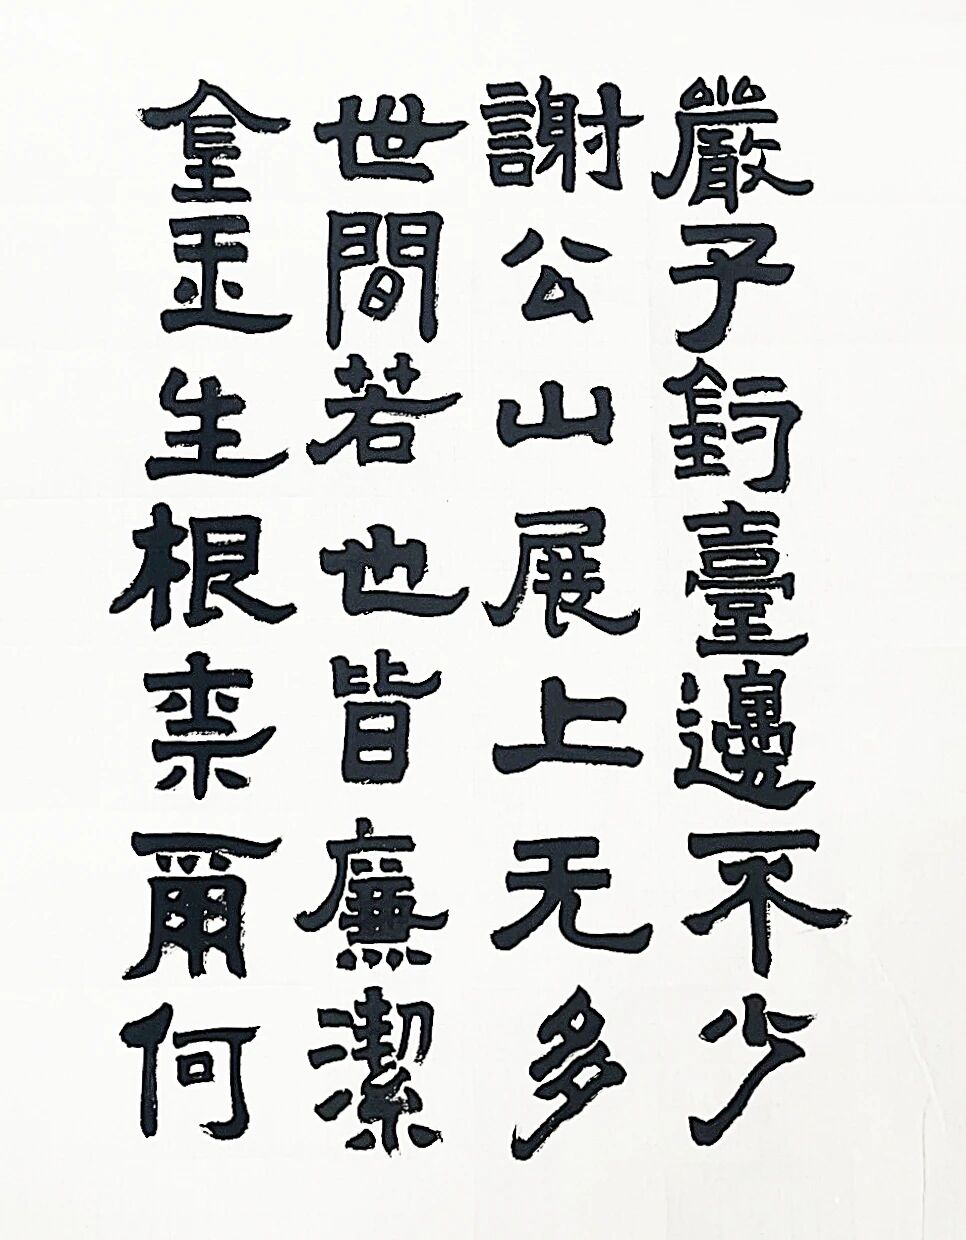 嚴子釣臺邊不少
謝公山展上无多
世間若也皆廉潔
金玉生根柰爾何